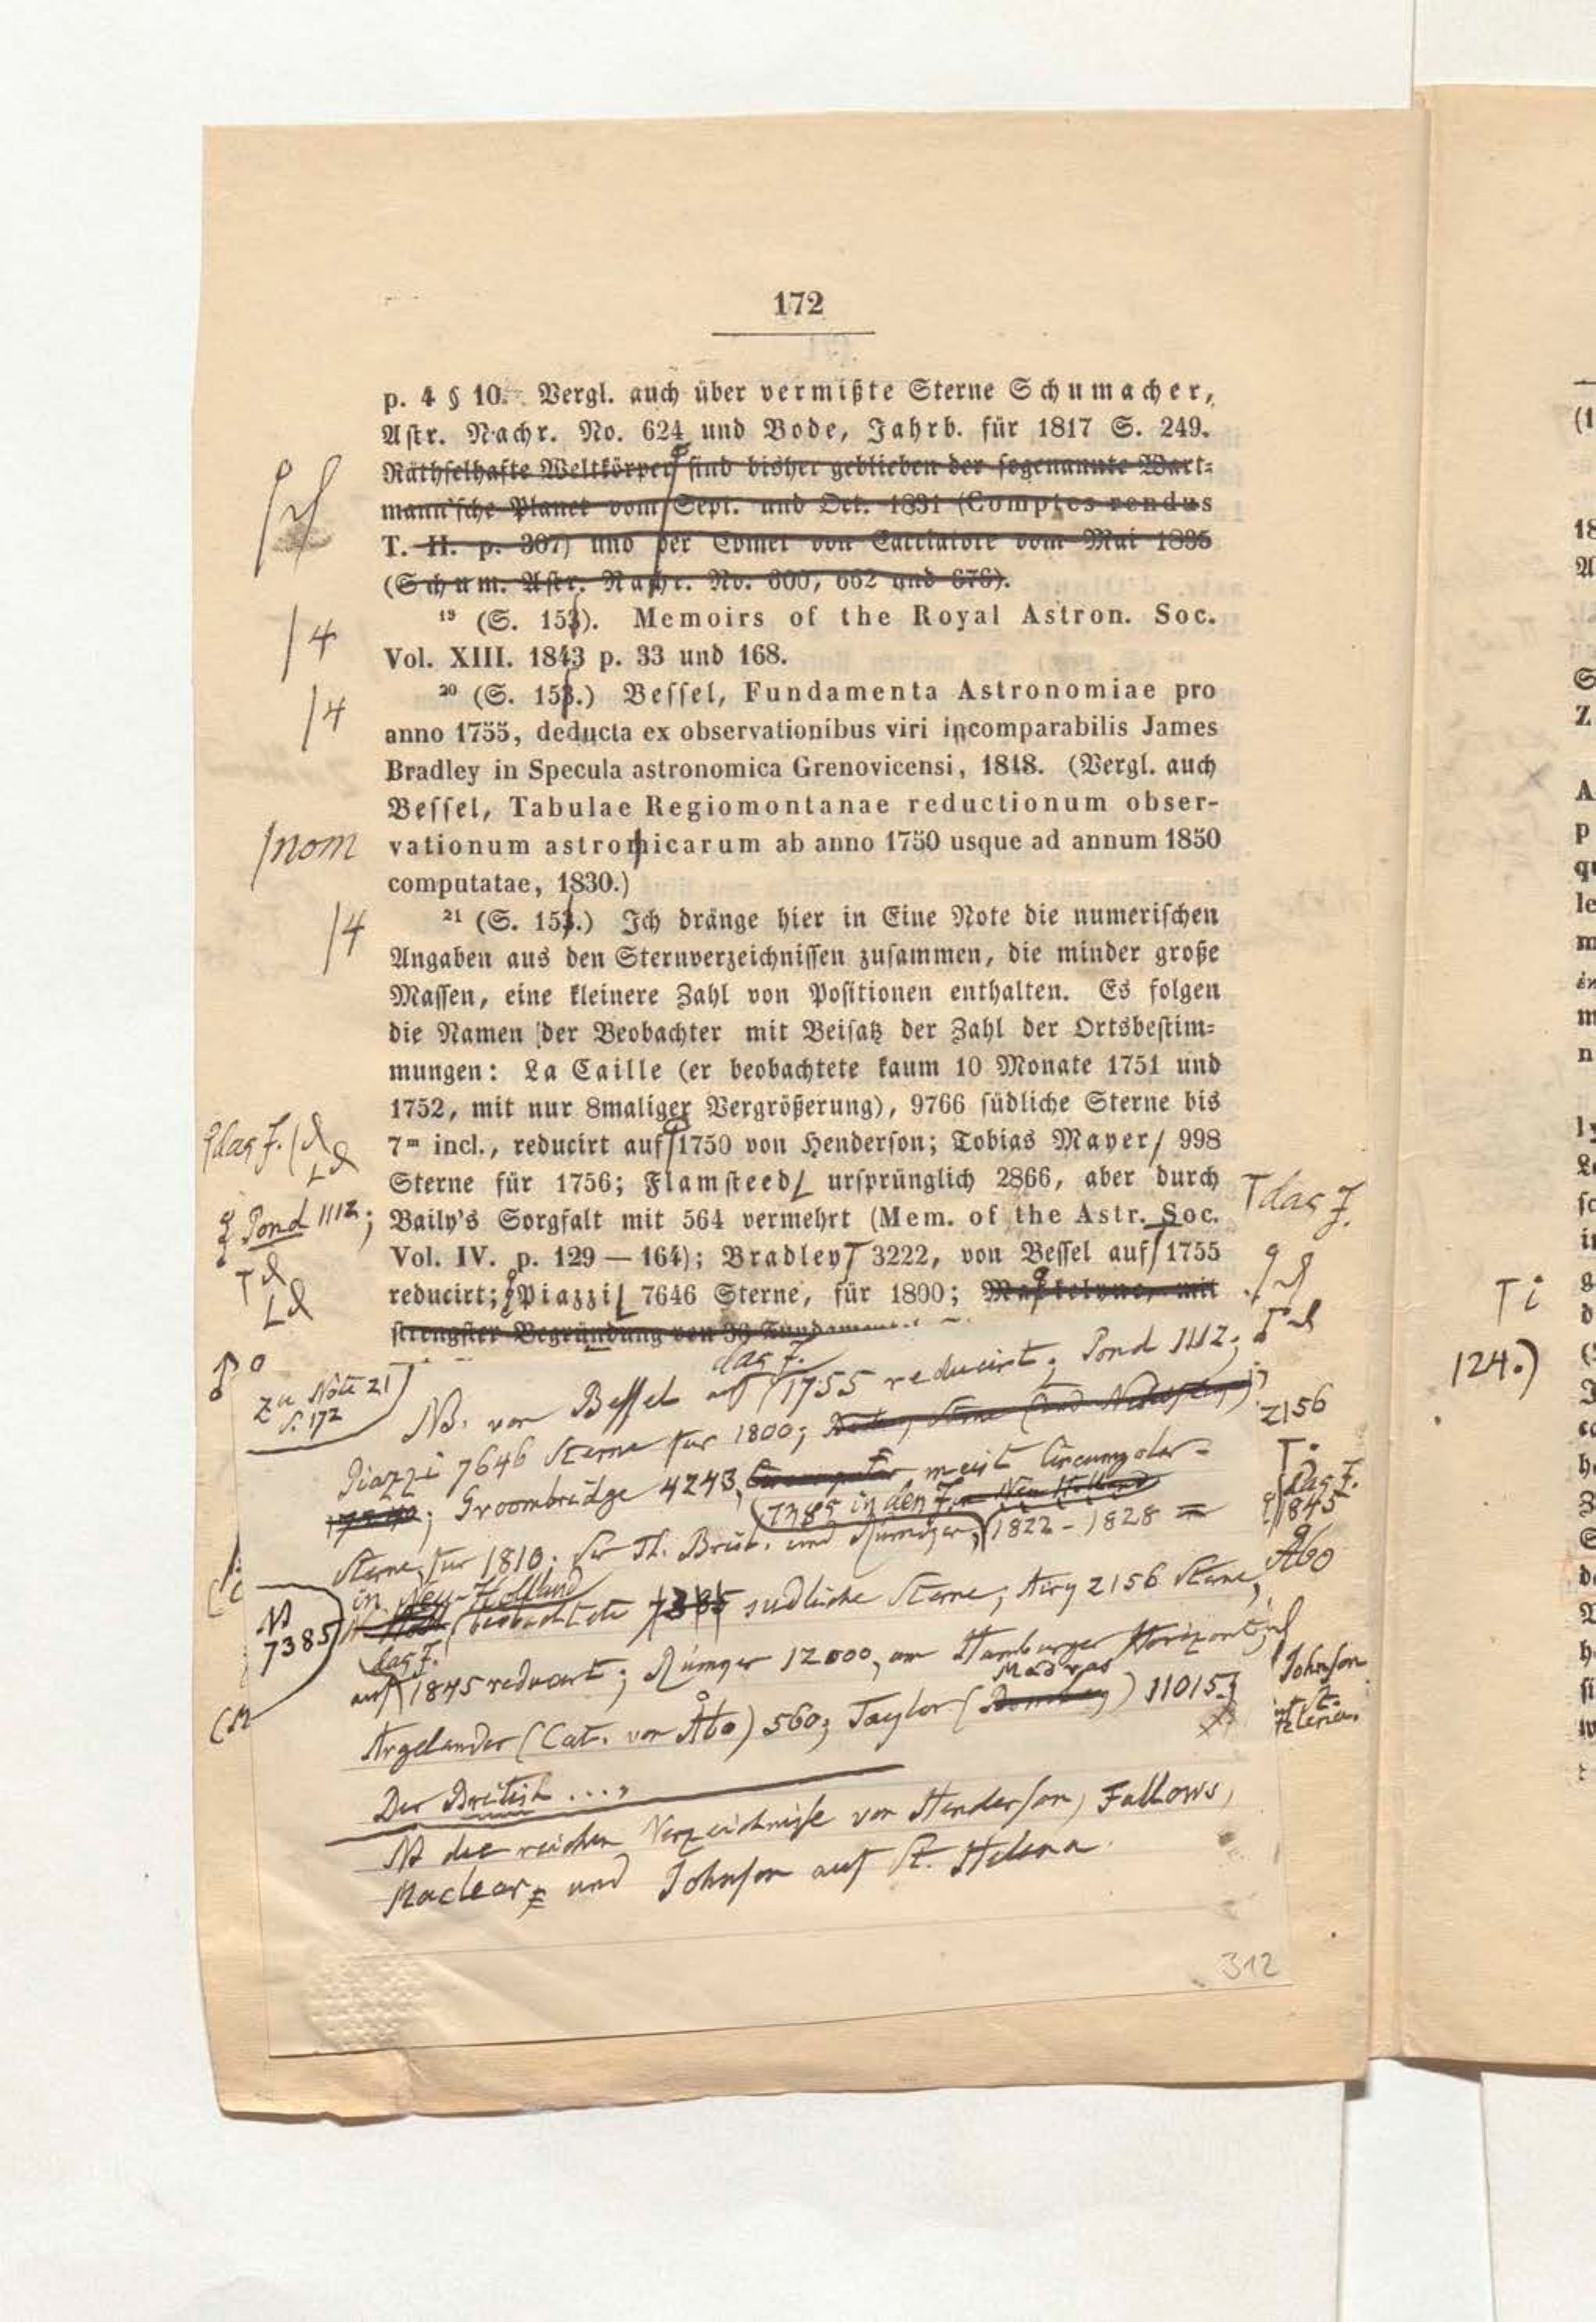 172
p. 4 § 10. Vergl. auch über vermißte Sterne Schumacher,
Astr. Nachr. No. 624 und Bode, Jahrb. für 1817 S. 249.
Räthselhafte Weltkörper sind bisher geblieben der sogenannte Wart-
mann'sche Planet vom Sept. und Oct. 1831 (Comptes rendus
T. II. p. 307) und der Comet von Cacciatore vom Mai 1835
(Schum. Astr. Nachr. No. 600, 662 und 676).
19 (S. 153). Memoirs of the Royal Astron. Soc.
/4
Vol. XIII. 1843 p. 33 und 168.
20 (S. 153.) Bessel, Fundamenta Astronomiae pro
/4
anno 1755, deducta ex observationibus viri incomparabilis James
Bradley in Specula astronomica Grenovicensi, 1818. (Vergl. auch
Bessel, Tabulae Regiomontanae reductionum obser-
/nom
vationum astromicarum ab anno 1750 usque ad annum 1850
computatae, 1830.)
/4
21 (S. 153.) Ich dränge hier in Eine Note die numerischen
Angaben aus den Sternverzeichnissen zusammen, die minder große
Massen, eine kleinere Zahl von Positionen enthalten. Es folgen
die Namen der Beobachter mit Beisatz der Zahl der Ortsbestim-
mungen: La Caille (er beobachtete kaum 10 Monate 1751 und
1752, mit nur 8maliger Vergrößerung), 9766 südliche Sterne bis
das J.
7m incl., reducirt auf 1750 von Henderson; Tobias Mayer, 998
Sterne für 1756; Flamsteed, ursprünglich 2866, aber durch
das J.
Pond 1112;
Baily's Sorgfalt mit 564 vermehrt (Mem. of the Astr. Soc.
Vol. IV. p. 129 — 164); Bradley, 3222, von Bessel auf 1755
reducirt; Piazzi, 7646 Sterne, für 1800; Maskelyne, mit
strengster Begründung von 36 Fundamental
zu Note 21
S. 172
das J.
NB. von Bessel auf 1755 reducirt; Pond 1112;
Piazzi 7646 Sterne für 1800;
2156
Groombridge 4243, meist Circumpolar-
7385 in den J.
das J.
1845
Sterne, für 1810; Sir Th. Brisb. und Rümger, 1822 - 1828
Abo
in Neu-Holland
NB
7385
beobachtete 7385 südliche Sterne; Airy 2156 Sterne,
das J.
auf 1845 reducirt; Rümger 12000, am Hamburger Horizont;
Madras
Johnson
St.
Argelander (Cat. von Åbo) 560; Taylor ( ) 11015.
Helena.
Der British ....
NB die reichen Verzeichnisse von Henderson, Fallows,
Maclear, und Johnson auf St. Helena.
312
T i
124.)